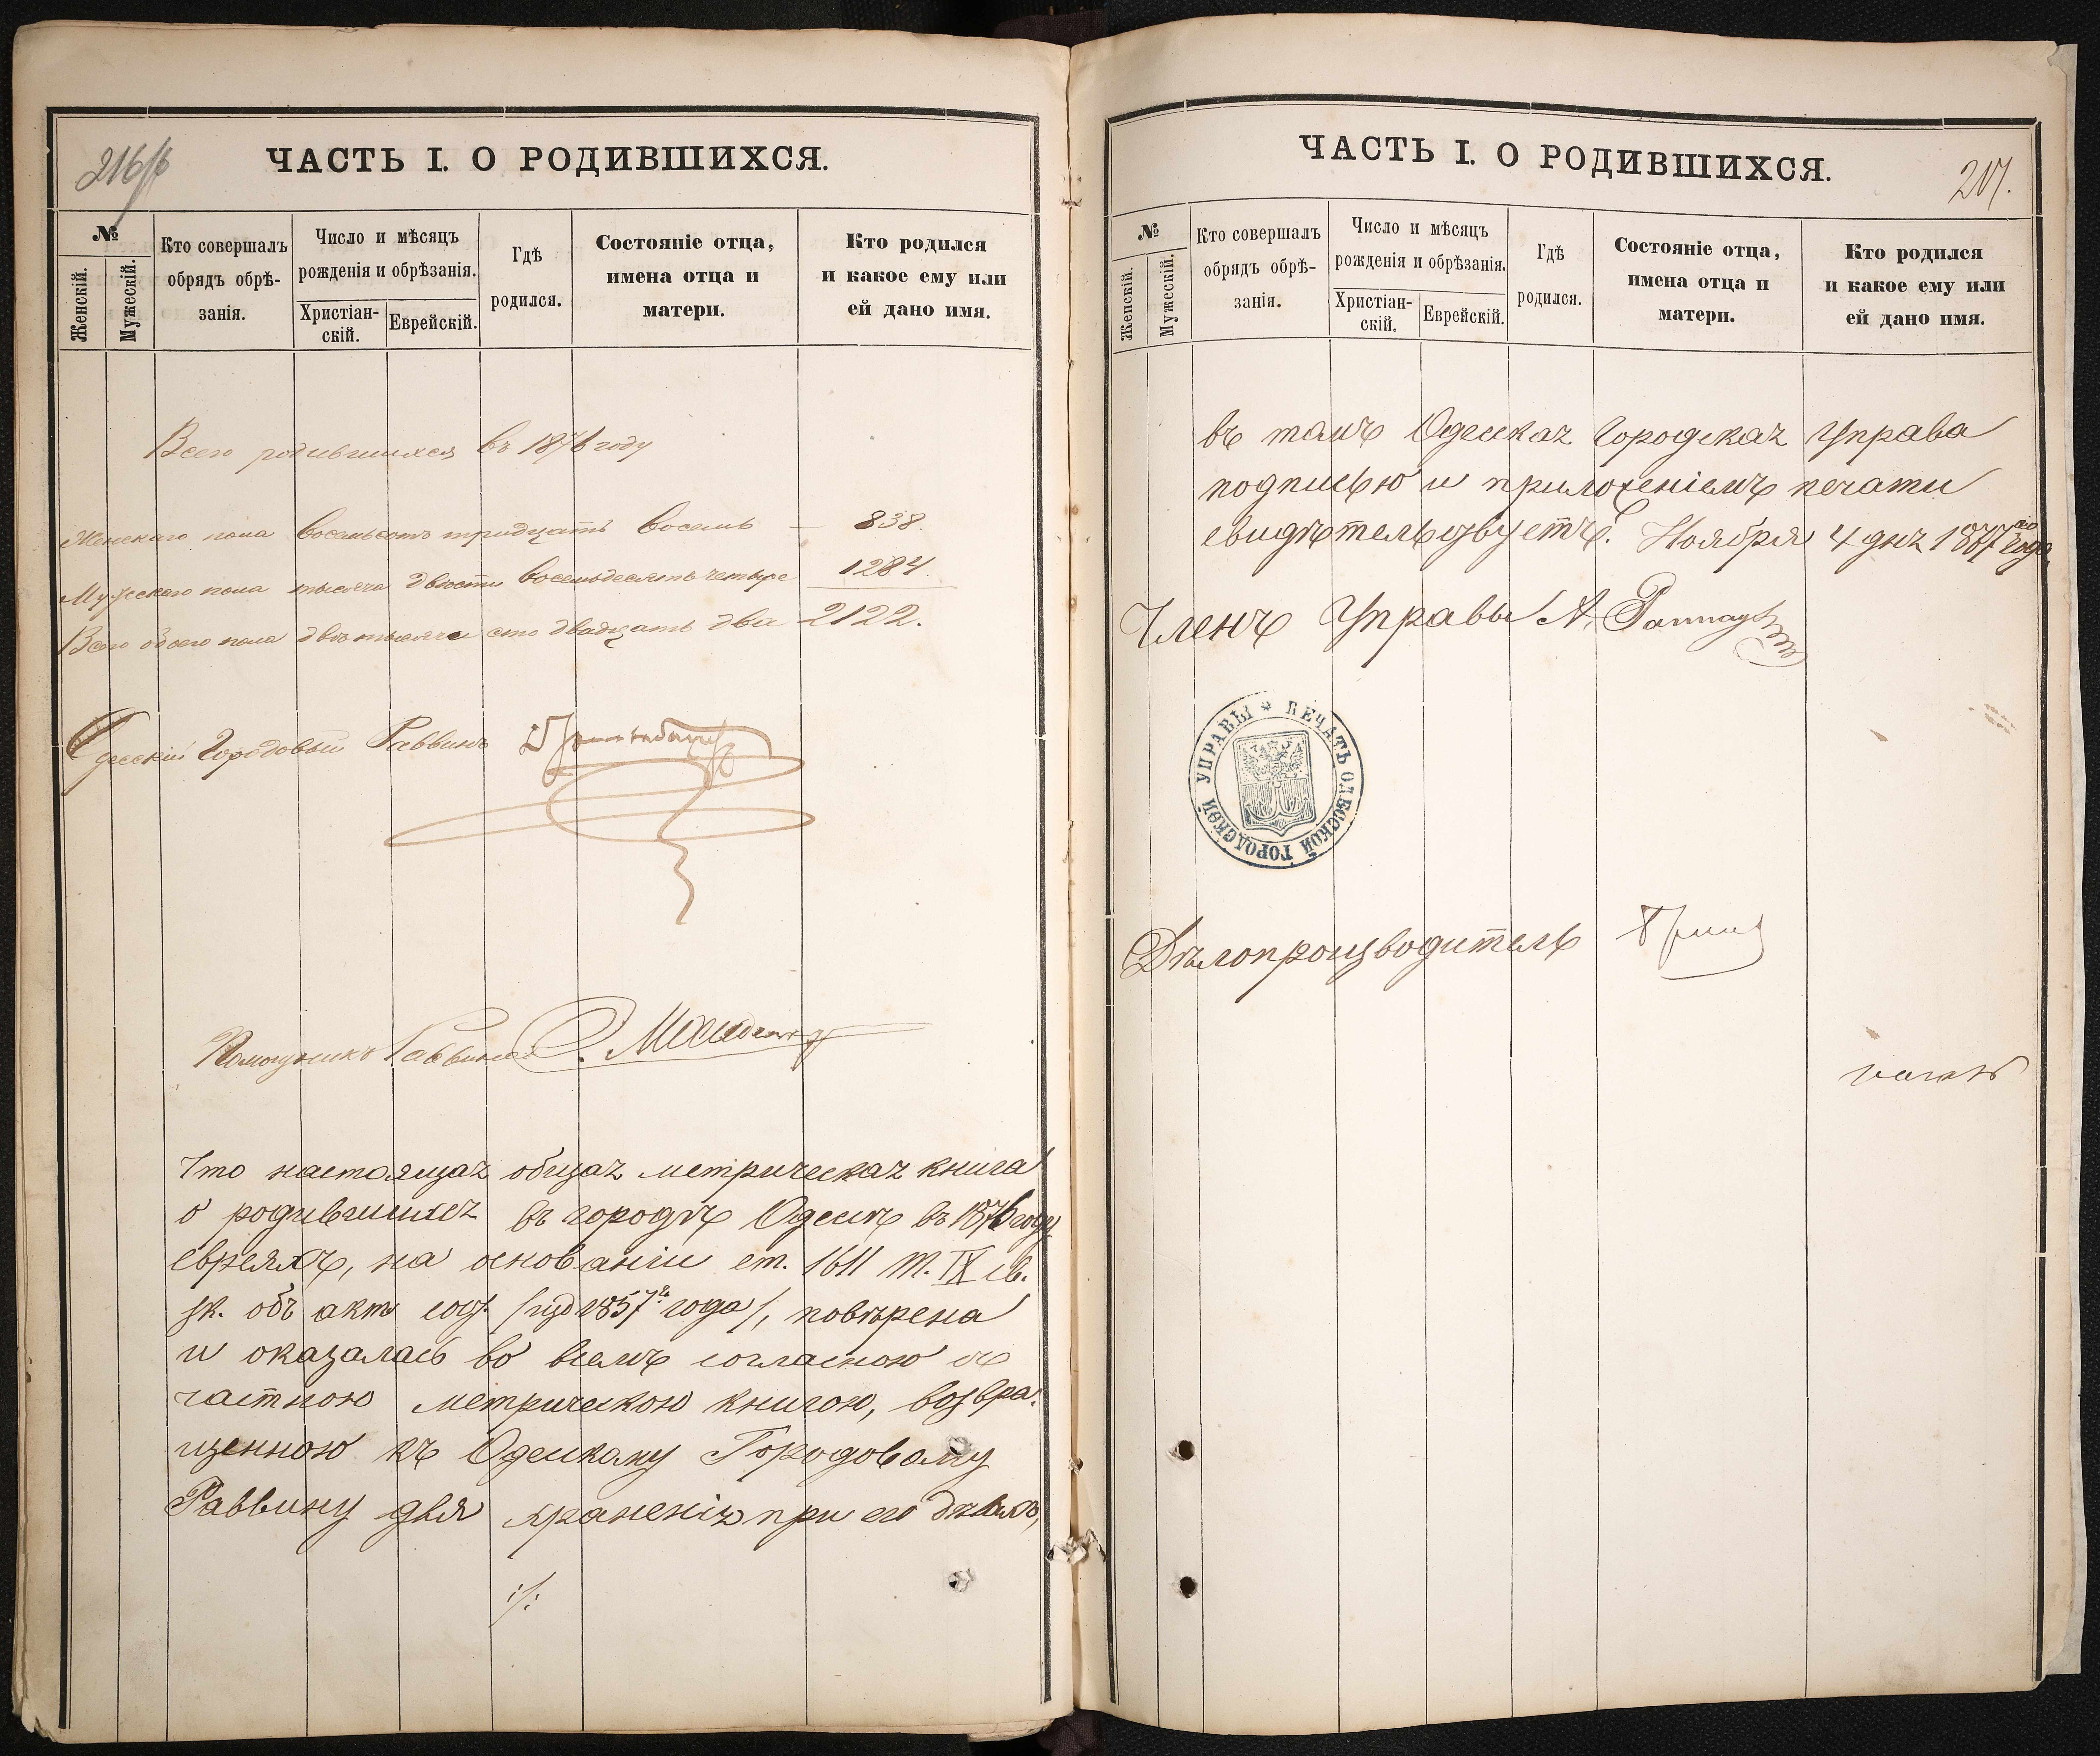 216/б
ЧАСТЬ I. О РОДИВШИХСЯ.
№
Женскій.
Мужескій.
Кто совершалъ
обрядъ обрѣ-
занія.
Число и мѣсяцъ
рожденія и обрѣзанія.
Христіан-
скій.
Еврейскій.
Гдѣ
родился.
Состояніе отца,
имена отца и
матери.
Кто родился
и какое ему или
ей дано имя.
Всего родившихся въ 1876 году
Женскаго пола восемьсотъ тридцать восемь — 838.
Мужескаго пола тысяча двѣсти восемьдесятъ четыре 1284.
Всего обоего пола двѣ тысячи сто двадцать два 2122.
Одесскій Городовый Раввинъ
Помощникъ Раввина
Что настоящая общая метрическая книга
о родившихся въ городѣ Одессѣ въ 1876 году
евреяхъ, на основаніи ст. 1611 т. IX св.
зк. объ акт. сост. /изд 1857го года/, повѣрена
и оказалась во всемъ согласною съ
частною метрическою книгою, возвра-
щенною къ Одесскому Городовому
Раввину для храненія при его дѣлахъ,
./.
ЧАСТЬ I. О РОДИВШИХСЯ.
217.
№
Женскій.
Мужескій.
Кто совершалъ
обрядъ обрѣ-
занія.
Число и мѣсяцъ
рожденія и обрѣзанія.
Христіан-
скій.
Еврейскій.
Гдѣ
родился.
Состояніе отца,
имена отца и
матери.
Кто родился
и какое ему или
ей дано имя.
въ томъ Одесская Городская Управа
подписью и приложеніемъ печати
свидѣтельствуетъ. Ноября 4 дня 1877го года.
Членъ Управы А.
ПЕЧАТЬ ОДЕССКОЙ ГОРОДСКОЙ УПРАВЫ *
Дѣлопроизводитель